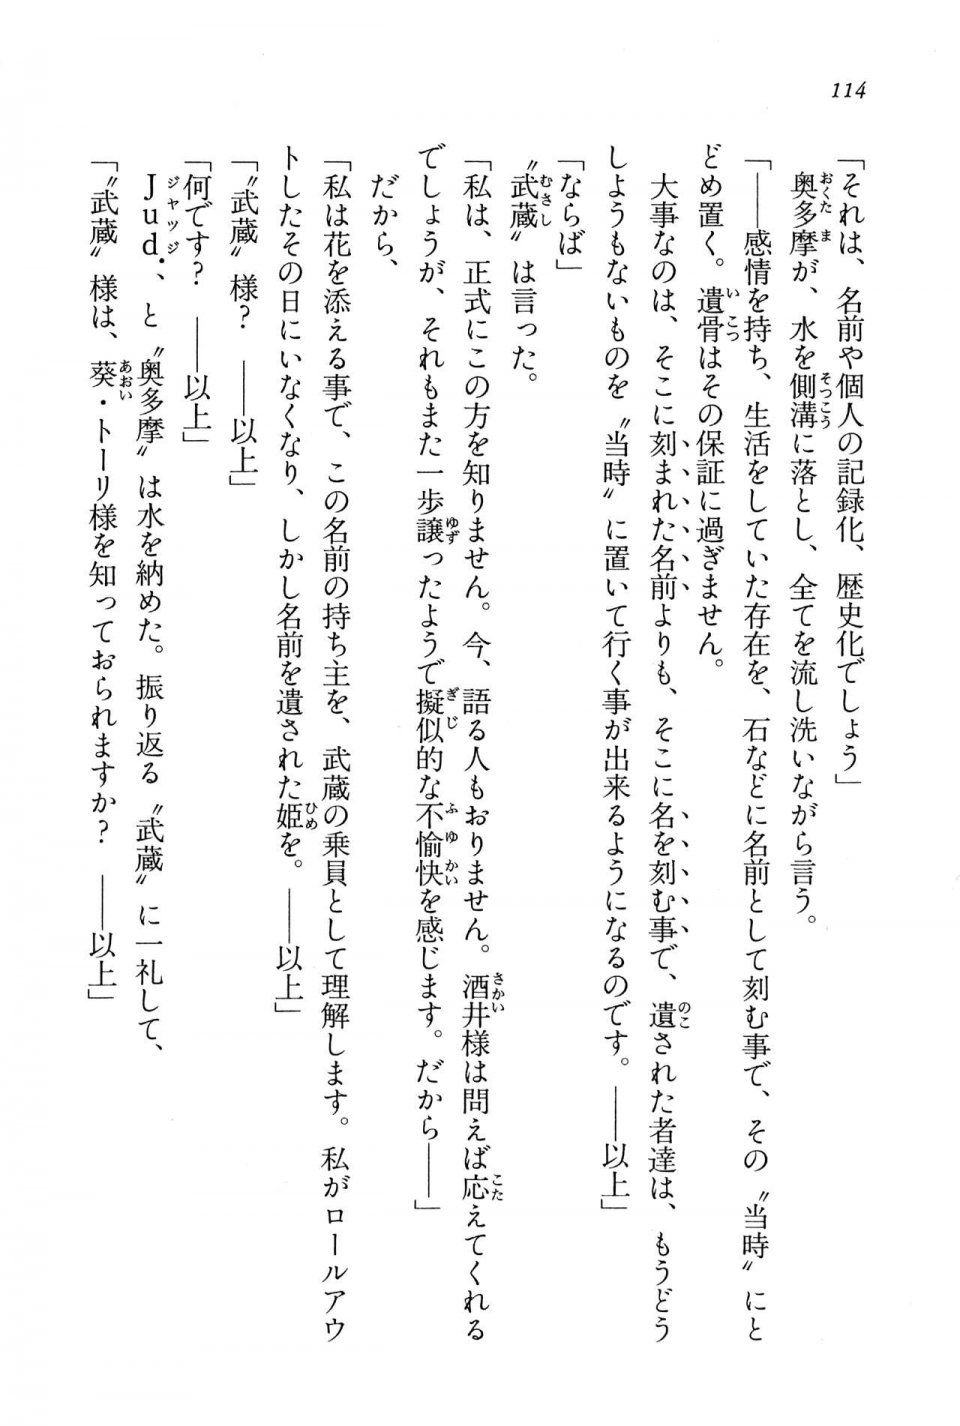 114
「それは、名前や個人の記録化、歴史化でしょう」
奥多摩が、水を側溝に落とし、全てを流し洗いながら言う。
「――感情を持ち、生活をしていた存在を、石などに名前として刻む事で、その〝当時〟にと
どめ置く。遺骨はその保証に過ぎません。
大事なのは、そこに刻まれた名前よりも、そこに名を刻む事で、遺された者達は、もうどう
しようもないものを〝当時〟に置いて行く事が出来るようになるのです。――以上」
「ならば」
〝武蔵〟は言った。
「私は、正式にこの方を知りません。今、語る人もおりません。酒井様は問えば応えてくれる
でしょうが、それもまた一歩譲ったようで擬似的な不愉快を感じます。だから――」
だから、
「私は花を添える事で、この名前の持ち主を、武蔵の乗員として理解します。私がロールアウ
トしたその日にいなくなり、しかし名前を遺された姫を。――以上」
「〝武蔵〟様？　――以上」
「何です？　――以上」
Jud.、と〝奥多摩〟は水を納めた。振り返る〝武蔵〟に一礼して、
「〝武蔵〟様は、葵・トーリ様を知っておられますか？　――以上」